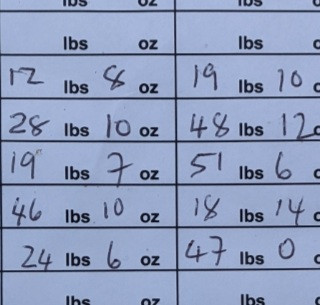 lbs oz lbs
lbs oz lbs
12 lbs 8 oz 19 lbs 10
28 lbs 10 oz 48 lbs 12
19 lbs 7 oz 51 lbs 6
46 lbs 10 oz 18 lbs 14
24 lbs 6 oz 47 lbs 0
lbs oz lbs